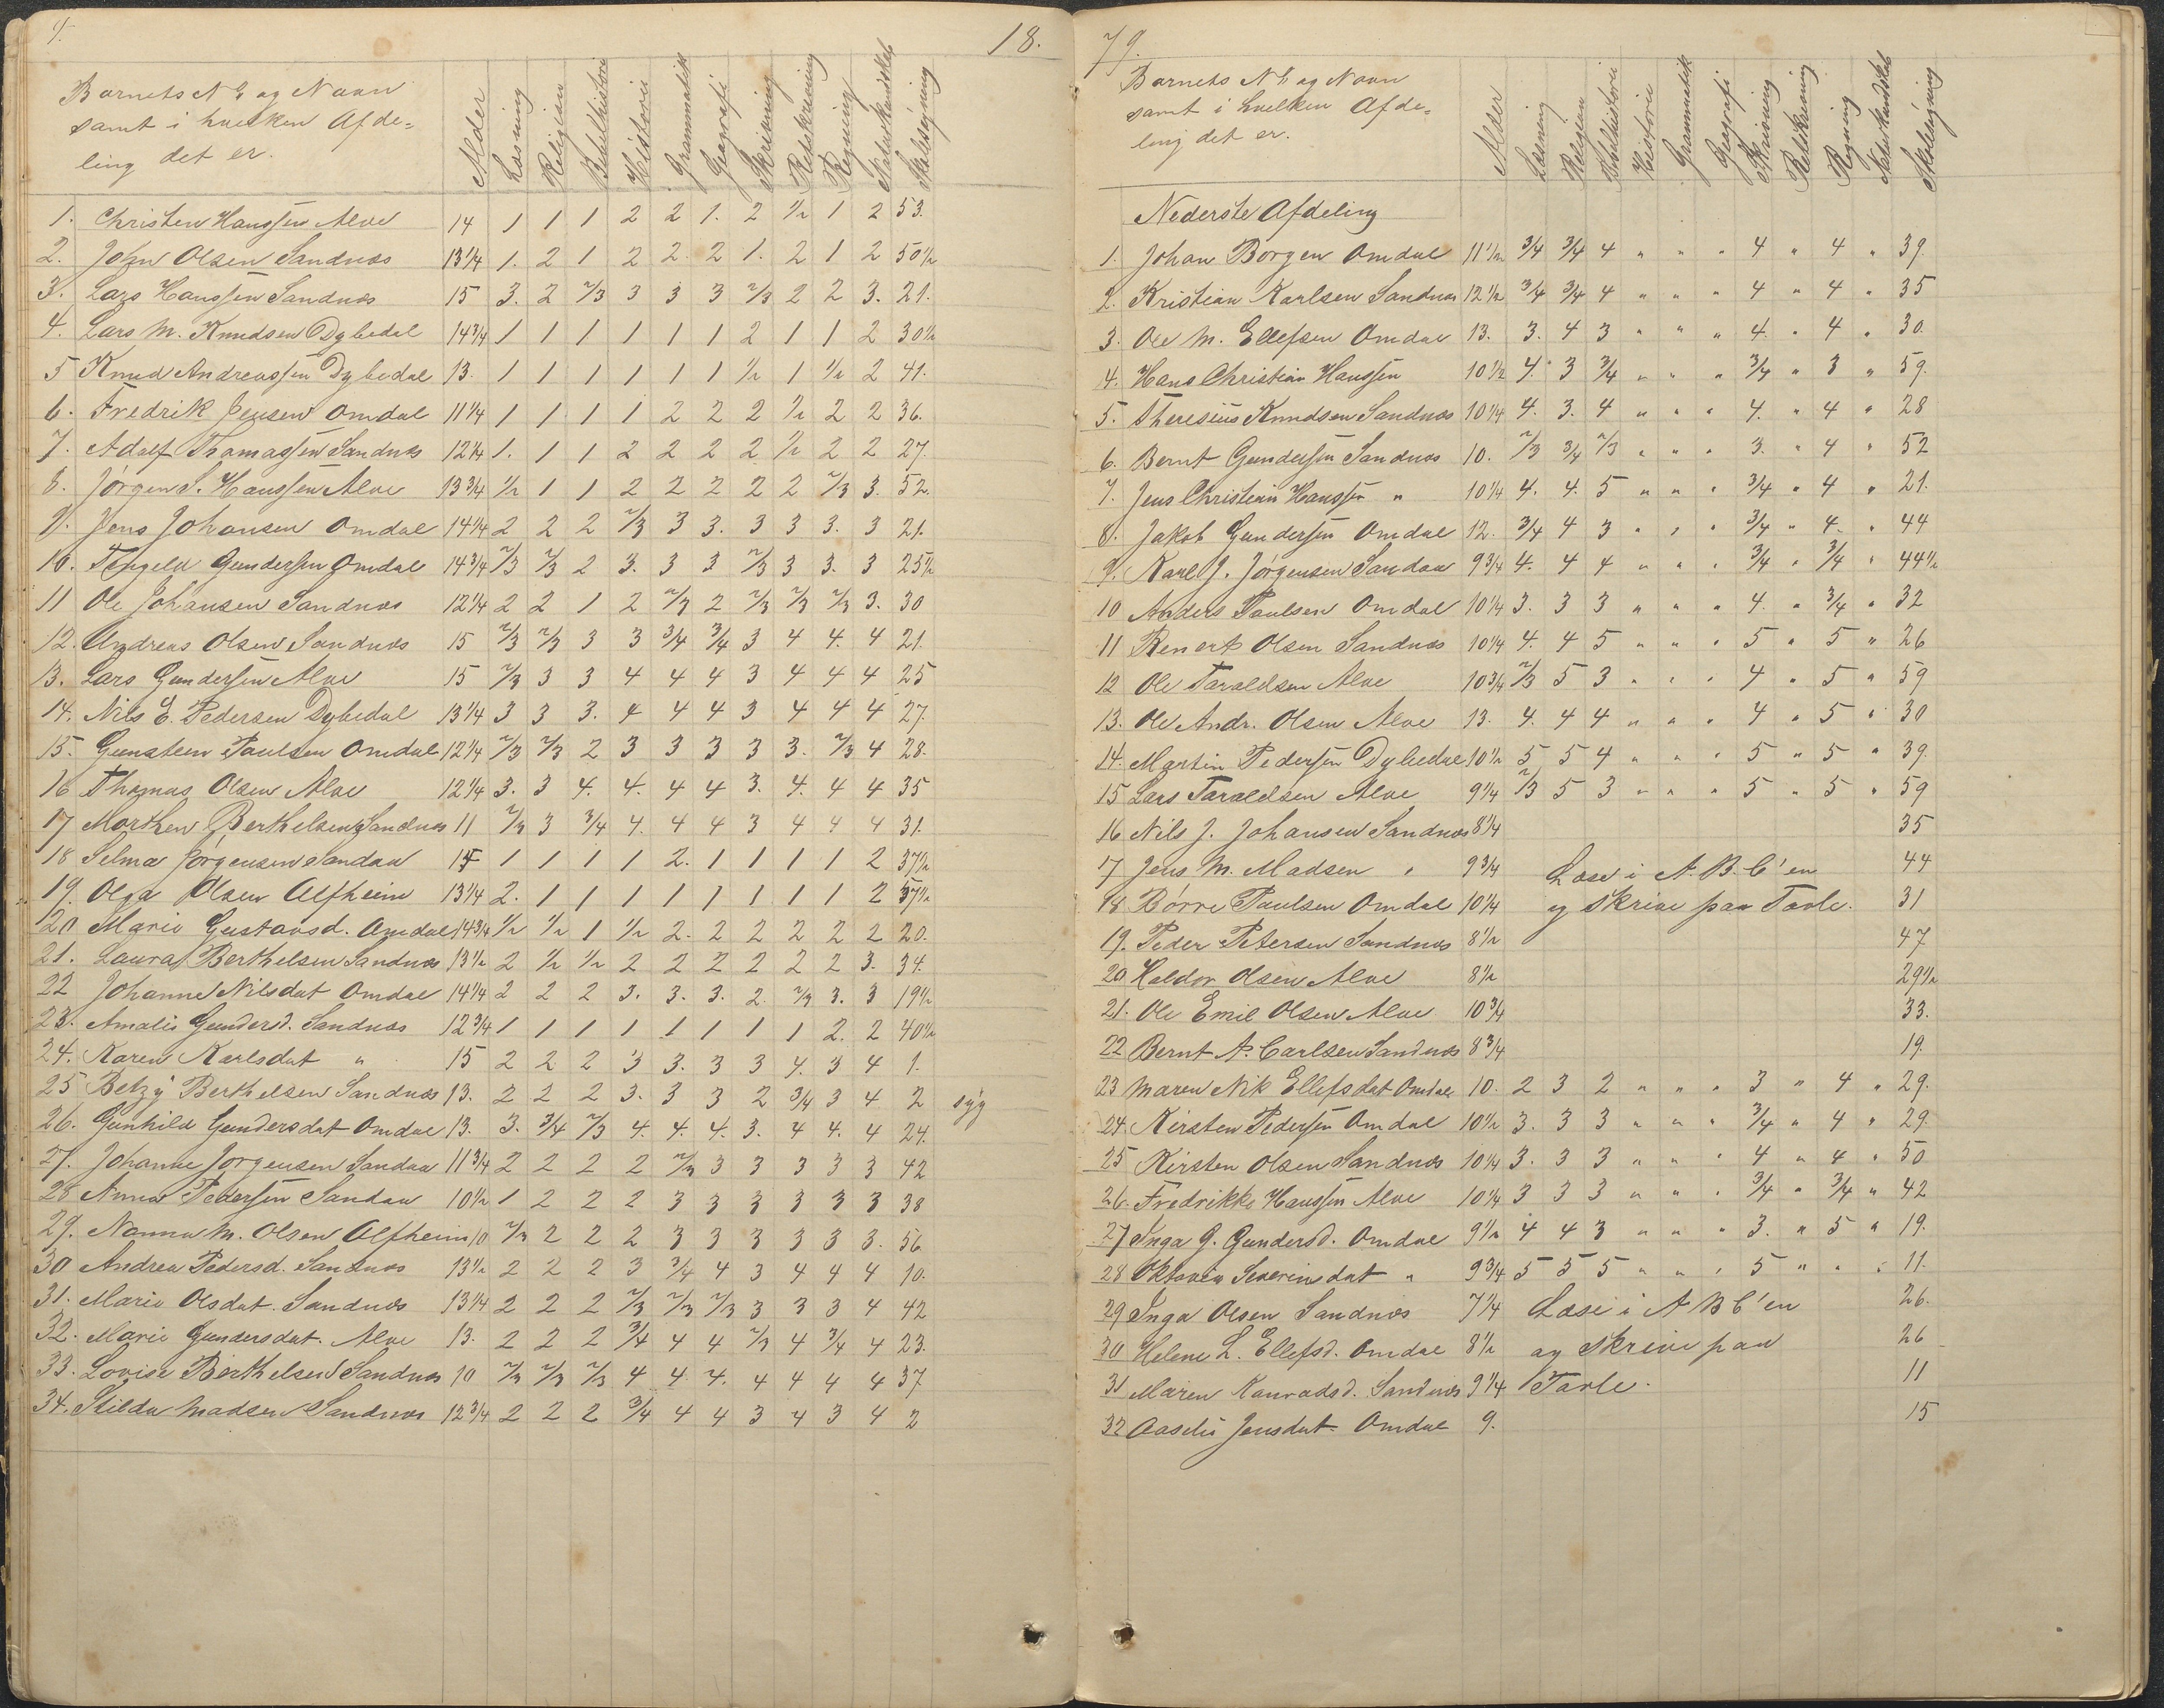 4.
18.
Barnets No og Navn
samt i hvilken Afde-
ling det er.
Alder Læsning Religion Bibelhistorie Historie Grammatik Geografi Skrivning Retskrivning Regning Naturkundskab Skolesøgning
1. Christen Hanssen Alve 14 1 1 1 2 2 1. 2 1/2 1 2 53.
2. John Olsen Sandnæs 13 1/4 1. 2 1 2 2. 2 1. 2 1 2 50 1/2
3. Lars Hanssen Sandnæs 15 3. 2 2/3 3 3 3 2/3 2 2 3. 21.
4. Lars M. Knudsen Dybedal 14 3/4 1 1 1 1 1 1 2 1 1 2 30 1/2
5 Knud Andreassen Dybedal 13. 1 1 1 1 1 1 1/2 1 1/2 2 41.
6. Fredrik Jensen Omdal 11 1/4 1 1 1 1 2 2 2 1/2 2 2 36.
7. Adolf Thomassen Sandnæs 12 1/4 1. 1 1 2 2 2 2 1/2 2 2 27.
8. Jørgen S. Hanssen Alve 13 3/4 1/2 1 1 2 2 2 2 2 2/3 3. 52.
9. Jens Johansen Omdal 14 1/4 2 2 2 2/3 3 3. 3 3 3. 3 21.
10. Gundersen Omdal 14 3/4 2/3 2/3 2 3. 3 3 2/3 3 3. 3 25 1/2
11 Ole Johansen Sandnæs 12 1/4 2 2 1 2 2/3 2 2/3 2/3 2/3 3. 30
12. Andreas Olsen Sandnæs 15 2/3 2/3 3 3 3/4 3/4 3 4 4. 4 21.
13. Lars Gundersen Alve 15 2/3 3 3 4 4 4 3 4 4 4 25
14. Nils E. Pedersen Dybedal 13 1/4 3 3 3. 4 4 4 3 4 4 4 27.
15. Gunsteen Paulsen Omdal 12 1/4 2/3 2/3 2 3 3 3 3 3. 2/3 4 28.
16 Thomas Olsen Alve 12 1/4 3. 3 4. 4. 4 4 3. 4. 4 4 35
17 Morthen Berthelsen Sandnæs 11 2/3 3 3/4 4. 4 4 3 4 4 4 31.
18 Selma Jørgensen Sandaa 15 1 1 1 1 2. 1 1 1 1 2 37 1/2
19. Olga Olsen Alfheim 13 1/4 2. 1 1 1 1 1 1 1 1 2 57 1/2
20 Marie Gustavsd. Omdal 14 3/4 1/2 1/2 1 1/2 2. 2 2 2 2 2 20.
21. Laura Berthelsen Sandnæs 13 1/2 2 1/2 1/2 2 2 2 2 2 2 3. 34.
22 Johanne Nilsdat Omdal 14 1/4 2 2 2 3. 3. 3. 2. 2/3 3. 3 19 1/2
23. Amalie Gundersd. Sandnæs 12 3/4 1 1 1 1 1 1 1 1 2. 2 40 1/2
24. Karen Karlsdat " 15 2 2 2 3 3. 3 3 4. 3 4 1.
25 Betzy Berthelsen Sandnæs 13. 2 2 2 3. 3 3 2 3/4 3 4 2 syg
26. Gunhild Gundersdat Omdal 13. 3. 3/4 2/3 4. 4. 4. 3. 4 4. 4 24.
27. Johanne Jørgensen Sandaa 11 3/4 2 2 2 2 2/3 3 3 3 3 3 42
28 Anna Pedersen Sandaa 10 1/2 1 2 2 2 3 3 3 3 3 3 38
29. Nanna M. Olsen Alfheim 10 2/3 2 2 2 3 3 3 3 3 3. 56.
30 Andrea Pedersd. Sandnæs 13 1/2 2 2 2 3 3/4 4 3 4 4 4 10.
31. Marie Olsdat. Sandnæs 13 1/4 2 2 2 2/3 2/3 2/3 3 3 3 4 42
32. Marie Gundersdat. Alve 13. 2 2 2 3/4 4 4 2/3 4 3/4 4 23.
33. Lovise Berthelsen Sandnæs 10 2/3 2/3 2/3 4 4 4. 4 4 4 4 37
34. Madsen Sandnæs 12 3/4 2 2 2 3/4 4 4 3 4 3 4 2
79.
Barnets No og Navn
samt i hvilken Afde-
ling det er.
Alder Læsning Religion Bibelhistorie Historie Grammatik Geografi Skrivning Retskrivning Regning Naturkundskab Skolesøgning
Nederste Afdeling
1. Johan Børgen Omdal 11 1/2 3/4 3/4 4 " " " 4 " 4 " 39.
2. Kristian Karlsen Sandnæs 12 1/2 3/4 3/4 4 " " " 4 " 4 " 35
3. Ole M. Ellefsen Omdal 13. 3. 4 3 " " " 4. " 4 " 30.
4. Hans Christian Hanssen 10 1/2 4. 3 3/4 " " " 3/4 " 3 " 59.
5. Theresius Knudsen Sandnæs 10 1/4 4. 3. 4 " " " 4. " 4 " 28
6. Bernt Gundersen Sandnæs 10. 2/3 3/4 2/3 " " " 3. " 4 " 52
7. Jens Christian Hanssen " 10 1/4 4. 4. 5 " " " 3/4 " 4 " 21.
8. Jakob Gundersen Omdal 12. 3/4 4 3 " " " 3/4 " 4. " 44
9. Karl J. Jørgensen Sandaa 9 3/4 4. 4 4 " " " 3/4 " 3/4 " 44 1/2
10 Anders Paulsen Omdal 10 1/4 3. 3 3 " " " 4. " 3/4 " 32
11 Renert Olsen Sandnæs 10 1/4 4. 4 5 " " " 5 " 5 " 26
12 Ole Taraldsen Alve 10 3/4 2/3 5 3 " " " 4 " 5 " 59
13. Ole Andr. Olsen Alve 13. 4. 4 4 " " " 4 " 5 " 30
14. Martin Pedersen Dybedal 10 1/2 5 5 4 " " " 5 " 5 " 39.
15 Lars Taraldsen Alve 9 1/4 2/3 5 3 " " " 5 " 5 " 59
16 Nils J. Johansen Sandnæs 8 1/4 35
17 Jens M. Madsen " 9 3/4 Læse i A.B.C'en 44
18 Børre Paulsen Omdal 10 1/4 og skrive paa Tavle. 31
19. Peder Petersen Sandnæs 8 1/2 47
20 Haldor Olsen Alve 8 1/2 29 1/2
21. Ole Emil Olsen Alve 10 3/4 33.
22 Bernt A. Carlsen Sandnæs 8 3/4 19.
23 Maren Nik Ellefsdat Omdal 10. 2 3 2 " " " 3 " 4 " 29.
24 Kirsten Pedersen Omdal 10 1/2 3. 3 3 " " " 3/4 " 4 " 29.
25 Kirsten Olsen Sandnæs 10 1/4 3. 3 3 " " " 4 " 4 " 50
26. Fredrikke Hanssen Alve 10 1/4 3 3 3 " " " 3/4 " 3/4 " 42
27 Inga G. Gundersd. Omdal 9 1/2 4 4 3 " " " 3. " 5 " 19.
28 Oktavia Severinsdat " 9 3/4 5 5 5 " " " 5 " " " 11.
29 Inga Olsen Sandnæs 7 1/4 Læse i A B C'en 26.
30 Helene L. Ellefsd. Omdal 8 1/2 og skrive paa 26
31 Maren Konradsd. Sandnæs 9 1/4 Tavle. 11
32 Aaselie Jensdat. Omdal 9. 15